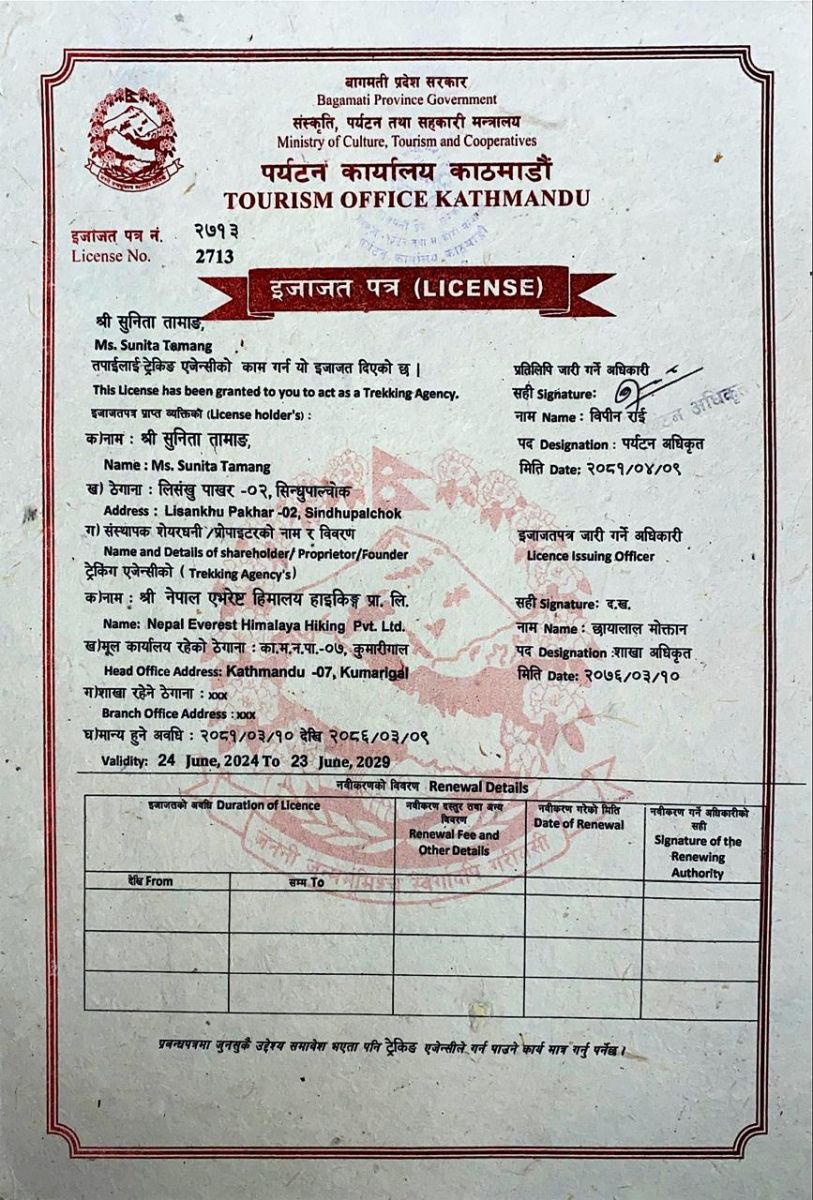 बागमती प्रदेश सरकार
Bagamati Province Government
संस्कृति, पर्यटन तथा सहकारी मन्त्रालय
Ministry of Culture, Tourism and Cooperatives
पर्यटन कार्यालय काठमाडौं
TOURISM OFFICE KATHMANDU
इजाजत पत्र नं. २७१३
License No. 2713
इजाजत पत्र (LICENSE)
श्री सुनिता तामाङ,
Ms. Sunita Tamang
तपाईलाई ट्रेकिङ एजेन्सीको काम गर्न यो इजाजत दिएको छ |
This License has been granted to you to act as a Trekking Agency.
इजाजतपत्र प्राप्त व्यक्तिको (License holder's) :
क)नाम : श्री सुनिता तामाङ,
Name : Ms. Sunita Tamang
ख) ठेगाना : लिसंखु पाखर -०२, सिन्धुपाल्चोक
Address : Lisankhu Pakhar -02, Sindhupalchok
ग) संस्थापक शेयरधनी /प्रोपाइटरको नाम र विवरण
Name and Details of shareholder/ Proprietor/Founder
ट्रेकिंग एजेन्सीको ( Trekking Agency's)
क)नाम : श्री नेपाल एभरेष्ट हिमालय हाइकिङ्ग प्रा. लि.
Name: Nepal Everest Himalaya Hiking Pvt. Ltd.
ख)मूल कार्यालय रहेको ठेगाना : का.म.न.पा.-०७, कुमारीगाल
Head Office Address: Kathmandu -07, Kumarigal
ग)शाखा रहने ठेगाना : xxx
Branch Office Address : xxx
घ)मान्य हुने अवधि : २०८१/०३/१० देखि २०८६/०३/०९
Validity: 24 June, 2024 To 23 June, 2029
प्रतिलिपि जारी गर्ने अधिकारी
सही Signature:
नाम Name : विपीन राई
पद Designation : पर्यटन अधिकृत
मिति Date: २०८१/०४/०९
इजाजतपत्र जारी गर्ने अधिकारी
Licence Issuing Officer
सही Signature: द.ख.
नाम Name : छायालाल मोक्तान
पद Designation :शाखा अधिकृत
मिति Date: २०७६/०३/१०
नवीकरणको विवरण Renewal Details
इजाजतको अवधि Duration of Licence
नवीकरण दस्तुर तथा अन्य
विवरण
Renewal Fee and
Other Details
नवीकरण गरेको मिति
Date of Renewal
नवीकरण गर्ने अधिकारीको
सही
Signature of the
Renewing
Authority
देखि From
सम्म To
जननी जन्मभूमिश्च स्वर्गादपि गरीयसी
प्रबन्धपत्रमा जुनसुकै उद्देश्य समावेश भएता पनि ट्रेकिङ एजेन्सीले गर्न पाउने कार्य मात्र गर्नु पर्नेछ ।